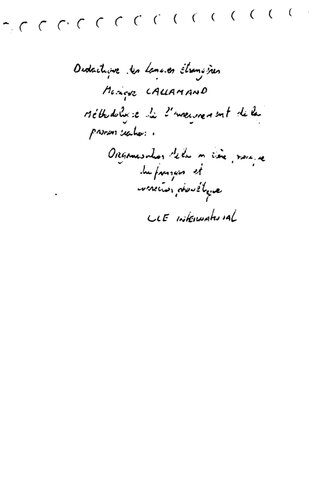 Didactique des langues étrangères
Monique CALLAMAND
Méthodologie de l'enseignement de la
prononciation.
Organisation de la matière phonique
du français et
correction phonétique
CLE INTERNATIONAL